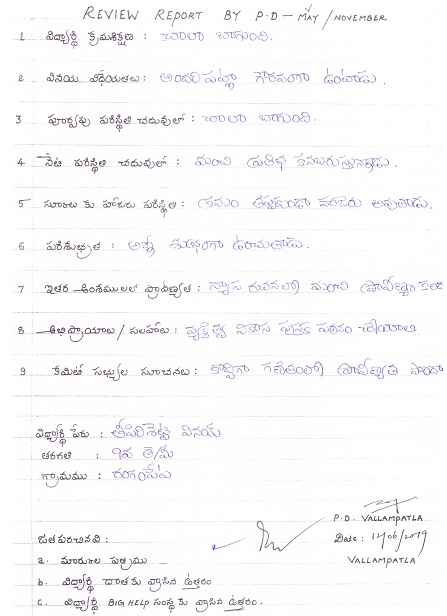 REVIEW REPORT BY P.D - MAY / NOVEMBER
1 విద్యార్థి క్రమశిక్షణ : చాలా బాగుంది.
2 వినయ విధేయతలు : అందరిపట్లా గౌరవంగా ఉంటాడు.
3 పూర్వపు పరిస్థితి చదువులో : చాలా బాగుంది.
4 నేటి పరిస్థితి చదువులో : మంచి ప్రతిభ కనబరుస్తున్నాడు.
5 స్కూలు కు హాజరు పరిస్థితి : క్రమం తప్పకుండా హాజరు అవుతాడు.
6 పరిశుభ్రత : అన్నీ శుభ్రంగా ఉంచుతాడు.
7 ఇతర అంశములలో ప్రావీణ్యత : వ్యాస రచనలో మంచి ప్రావీణ్యం కలదు
8 అభిప్రాయాలు / సలహాలు : వ్యక్తిత్వ వికాస పుస్తక పఠనం చేయాలి
9 కమిటీ సభ్యుల సూచనలు : కొద్దిగా గణితంలో ప్రావీణ్యత
విద్యార్థి పేరు : తీపిరిశెట్టి వినయ్
తరగతి : 9వ తె/మీ
గ్రామము : రంగంపేట
P.D. VALLAMPATLA
Date : 12/06/2019
VALLAMPATLA
జతపరచినవి :
a. మార్కుల పత్రము
b. విద్యార్థి దాతకు వ్రాసిన ఉత్తరం
c. విద్యార్థి BIG HELP సంస్థకు వ్రాసిన ఉత్తరం.